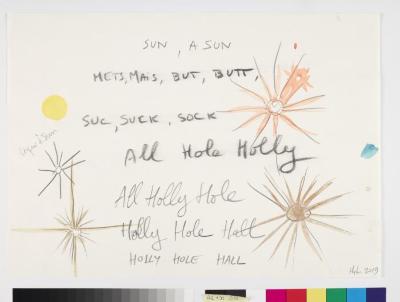 SUN, A SUN
METS, MAIS, BUT, BUTT,
SUC, SUCK, SOCK
All Hole Holly
All Holly Hole
Holly Hole Hall
HOLLY HOLE HALL
2019